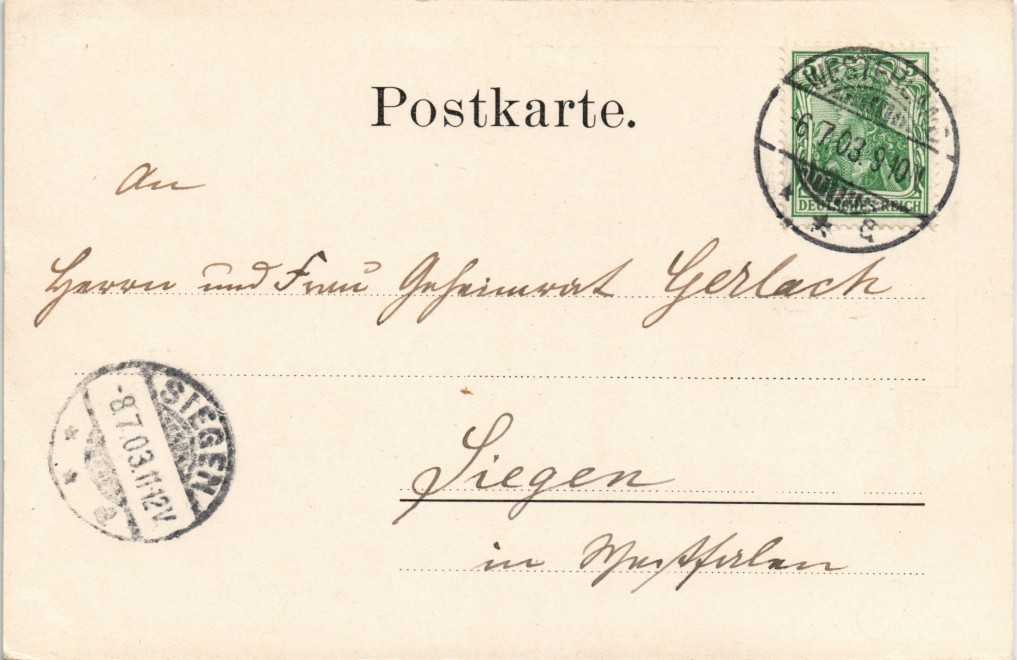 Postkarte.
WESTERLAND
-6.7.03.9-10
a
5
DEUTSCHES REICH
An
Herrn und Frau Geheimrat Gerlach
SIEGEN
-8.7.03.11-12V.
a
Siegen
in Westfalen